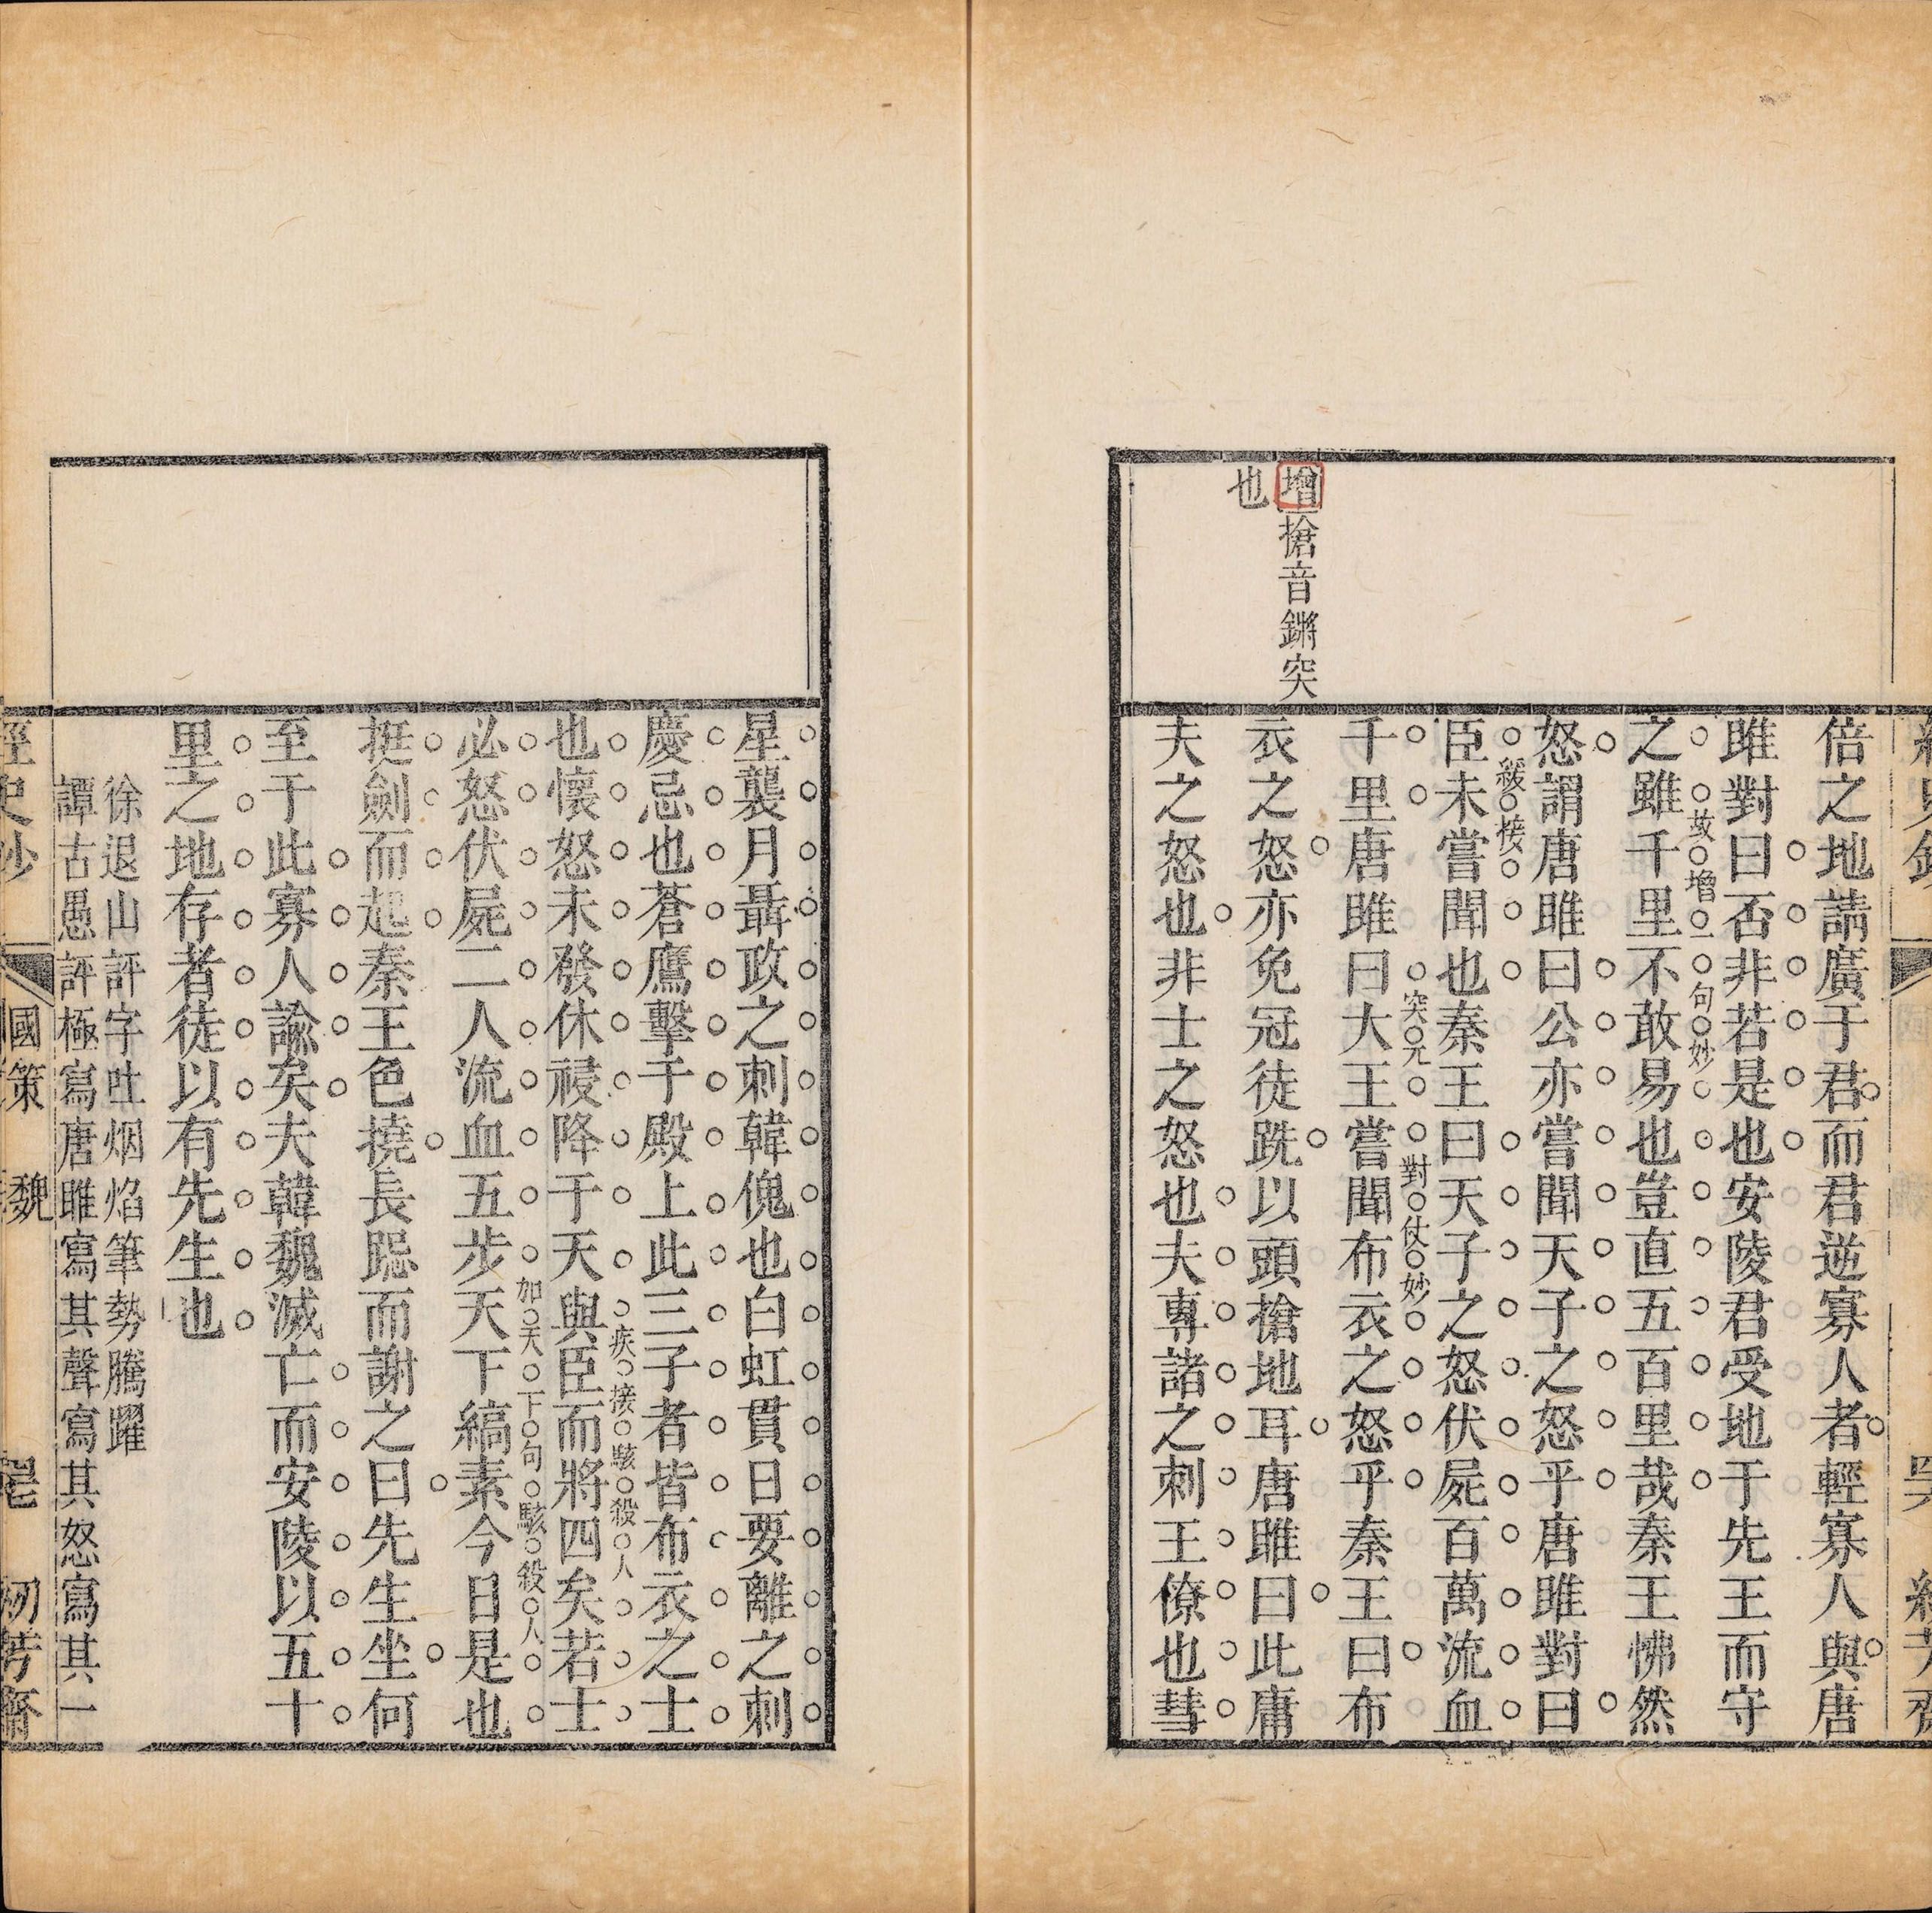 倍之地請廣于君而君逆寡人者輕寡人與唐
雎對曰否非若是也安陵君受地于先王而守
故增一句妙
之雖千里不敢易也豈直五百里哉秦王怫然
怒謂唐雎曰公亦嘗聞天子之怒乎唐雎對曰
緩接
臣未嘗聞也秦王曰天子之怒伏屍百萬流血
突兀對仗妙
千里唐雎曰大王嘗聞布衣之怒乎秦王曰布
增搶音鏘突
也
衣之怒亦免冠徒跣以頭搶地耳唐雎曰此庸
夫之怒也非士之怒也夫專諸之刺王僚也彗
星襲月聶政之刺韓傀也白虹貫日要離之刺
慶忌也蒼鷹擊于殿上此三子者皆布衣之士
疾接駭殺人
也懷怒未發休祲降于天與臣而將四矣若士
加天下句駭殺人
必怒伏屍二人流血五步天下縞素今日是也
挺劍而起秦王色撓長跽而謝之曰先生坐何
至于此寡人諭矣夫韓魏滅亡而安陵以五十
里之地存者徒以有先生也
徐退山評字吐烟焰筆勢騰躍
譚古愚評極寫唐雎寫其聲寫其怒寫其一
經史鈔 國策 魏 紉芳齋